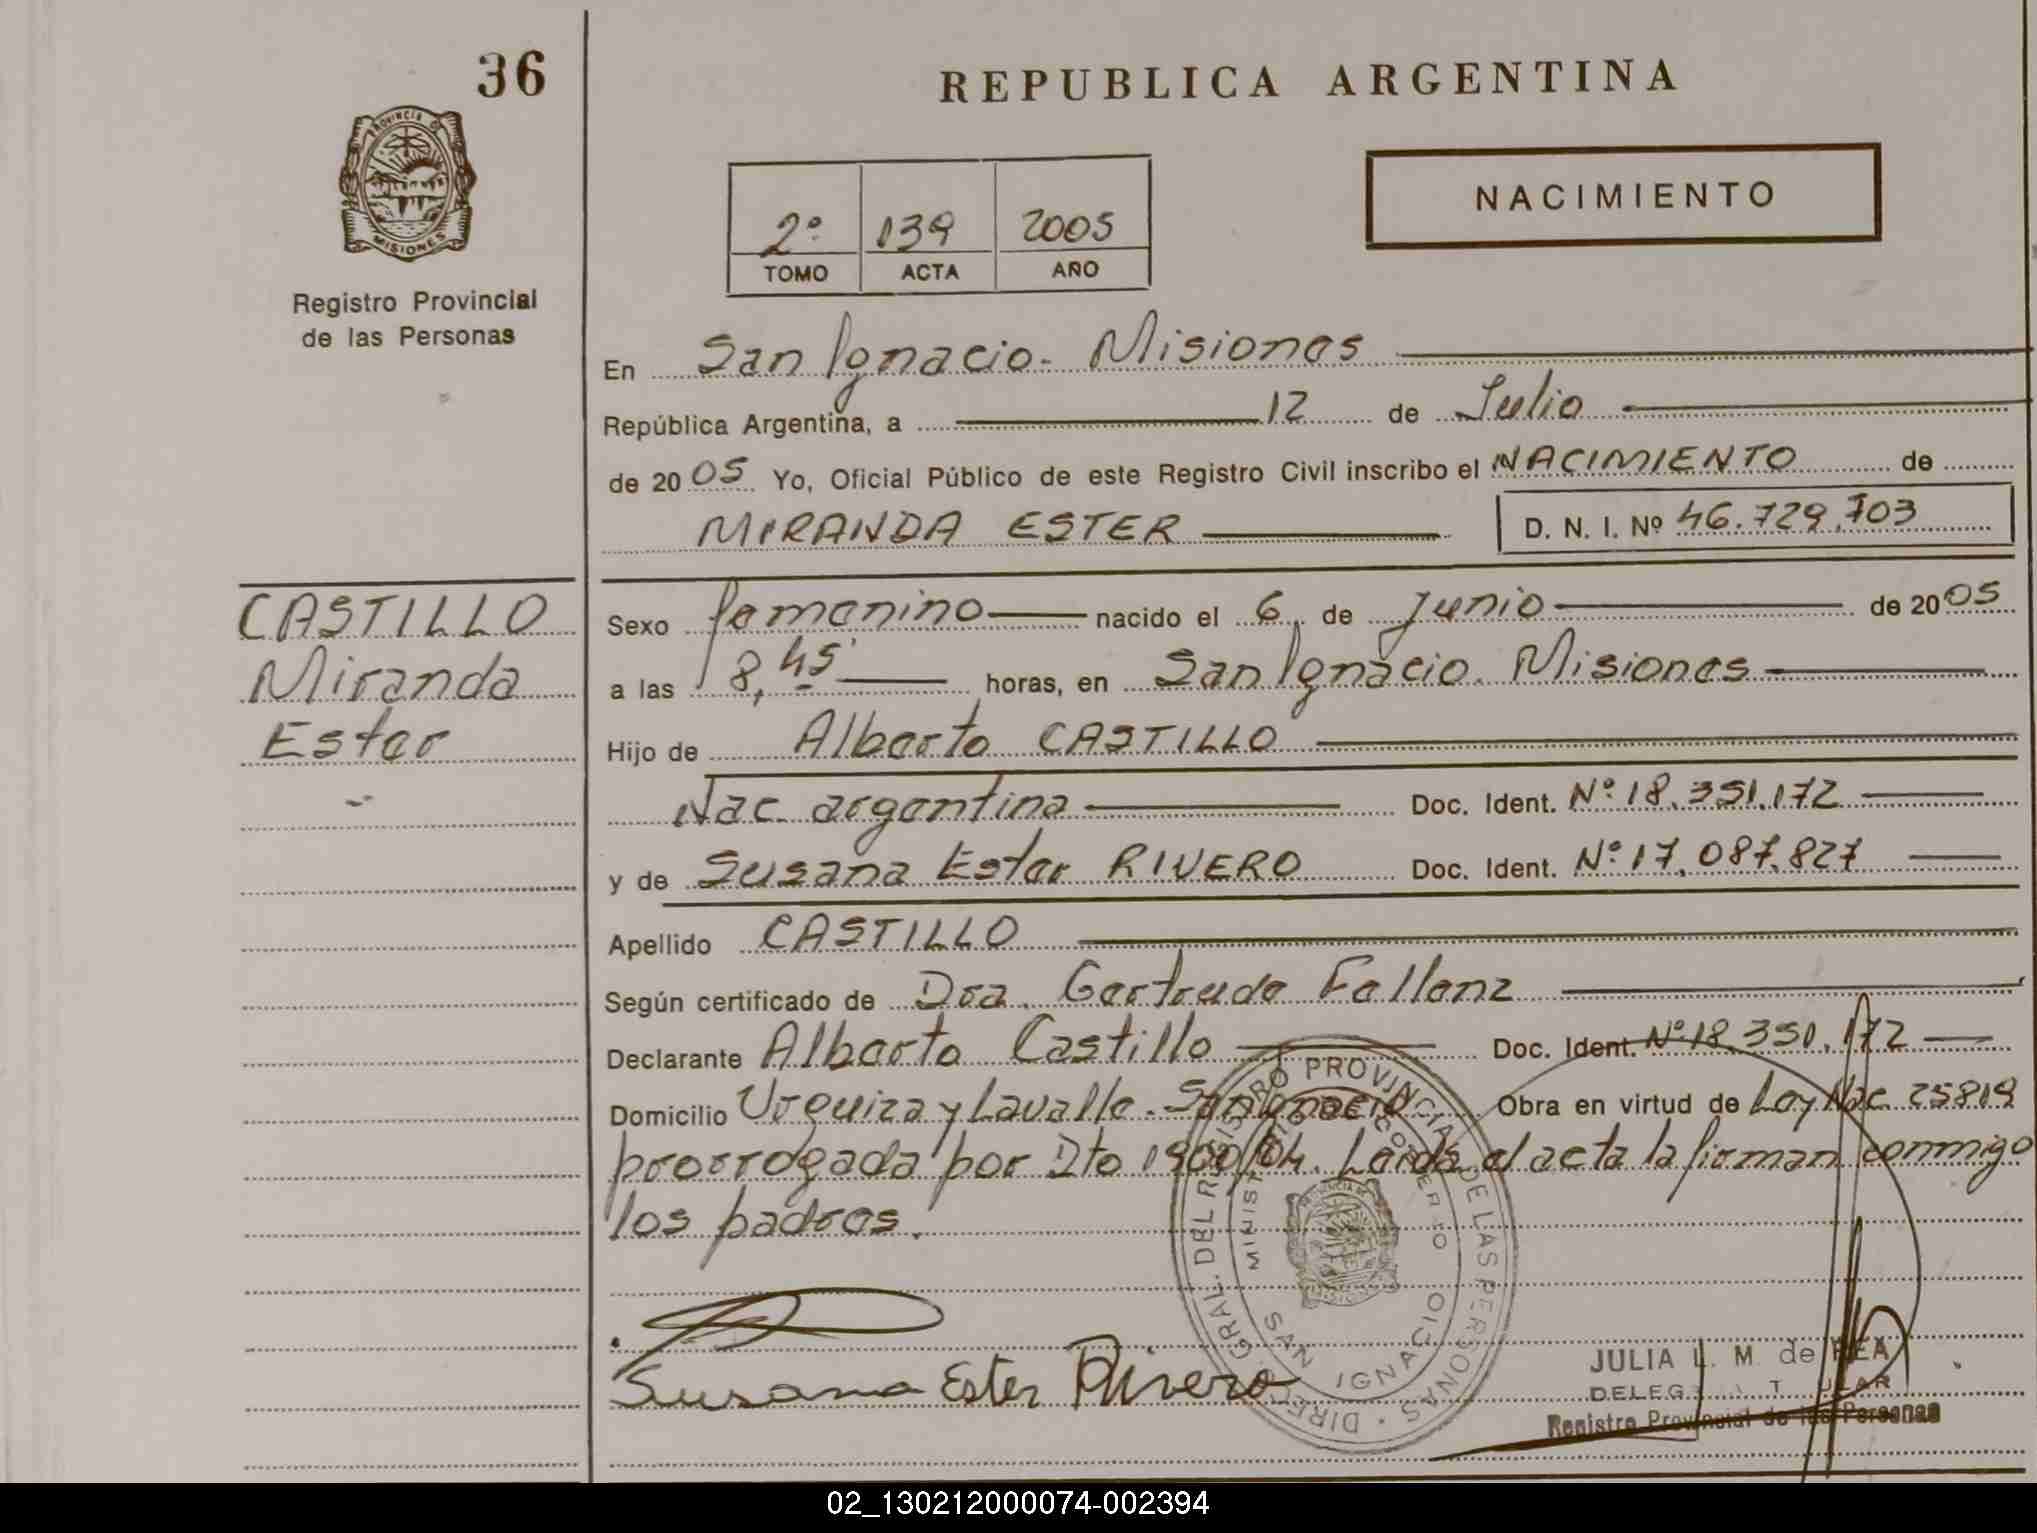 36
REPUBLICA ARGENTINA
PROVINCIA DE
MISIONES
Registro Provincial
de las Personas
NACIMIENTO
2º 139 2005
TOMO ACTA AÑO
En San Ignacio - Misiones
República Argentina, a 12 de Julio
de 2005 Yo, Oficial Público de este Registro Civil inscribo el NACIMIENTO de
MIRANDA ESTER D. N. I. Nº 46.729.703
CASTILLO
Miranda
Ester
Sexo femenino nacido el 6 de Junio de 2005
a las 8,45' horas, en San Ignacio. Misiones
Hijo de Alberto CASTILLO
Nac. argentina Doc. Ident. Nº 18.351.172
y de Susana Ester RIVERO Doc. Ident. Nº 17.087.827
Apellido CASTILLO
Según certificado de Dra. Gertrude Fallenz
Declarante Alberto Castillo Doc. Ident. Nº 18.351.172
Domicilio Urquiza y Lavalle. San Ignacio Obra en virtud de Ley Nac 25819
prorrogada por Dto 1900/04. Leída el acta la firman conmigo
los padres.
DIREC. GRAL. DEL REGISTRO PROVINCIAL DE LAS PERSONAS
MINISTERIO GOBIERNO
SAN IGNACIO
Susana Ester Rivero
JULIA L. M. de REA
DELEGADA TITULAR
Registro Provincial de las Personas
02_130212000074-002394